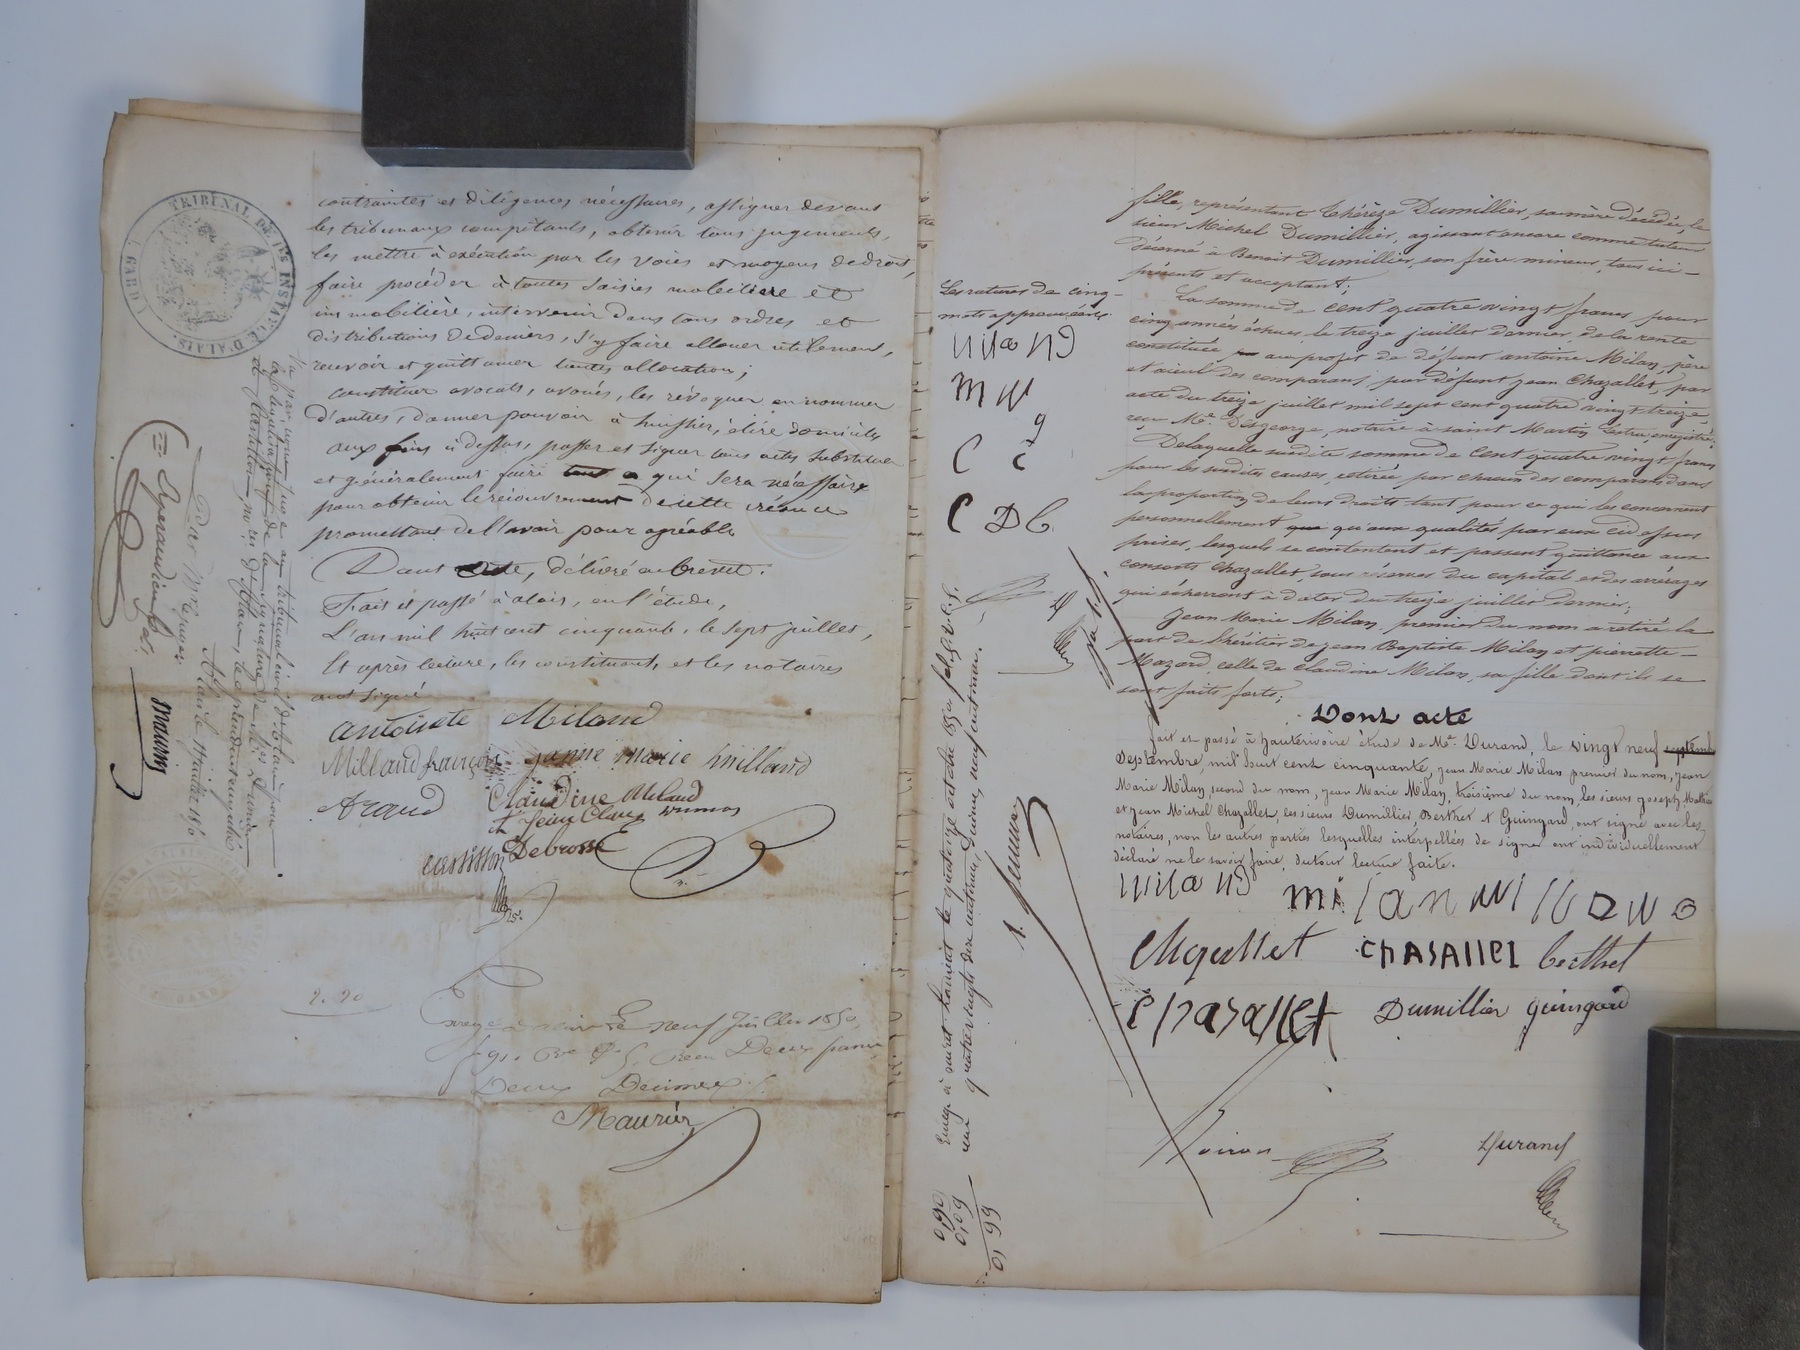 contraintes et diligences nécessaires, assigner devant
les tribunaux compétants, obtenir tous jugements,
les mettre à exécution par les voies et moyens de droit,
faire procéder à toutes saisies mobilière et
immobilière, intervenir dans tous ordres et
distributions de deniers, s'y faire allouer utilement,
recevoir et quittancer toutes allocations;
constituer avocats, avoués, les révoquer en nommer
d'autres, donner pouvoir à huissier, élire domicile
aux fins ci dessus, passer et signer tous actes substituer
et généralement faire tout ce qui sera nécessaire
pour obtenir le recouvrement de cette créance
promettant de l'avoir pour agréable
Dont Acte, délivré en brevet.
Fait et passé à alais, en l'étude,
L'an mil huit cent cinquante, le sept juillet,
Et après lecture, les constituants, et les notaires
ont signé
antoinete Miland
Milland françois janne marie milland
Araud Claudine Miland
Jein Claux
Debrosse
TRIBUNAL DE 1re INSTANCE D'ALAIS. (GARD)
Vu par nous juge au tribunal civil d'alais pour
la légalisation de la signature de
Alais le 1850
Maurin
2. 20
le neuf Juillet 1850
Deux francs
Deux Decimes
Maurin
Les ratures de cinq
mots approuvées.
MilaND
M M
C C
C D B
Enregé à le quatorze octobre 1850, fol.
un quatre vingt dix centimes, décime, neuf centimes.
0,90
0,09
0,99
fille, représentant Thérèze Dumillier, sa mère décédée, le
sieur Michel Dumillier, agissant encore comme tuteur
décerné à Benoit Dumillier, son frère mineur, tous ici –
présents et acceptant;
La somme de cent quatre vingt francs pour
cinq années échues le treize juillet dernier, de la rente
constituée au profit de défunt antoine Milan, père
et aieul des comparans, par défunt jean Chazallet, par
acte du treize juillet mil sept cent quatre vingt treize,
reçu Me. Desgeorge, notaire à saint Martin Lestra, enregistré.
De laquelle susdite somme de Cent quatre vingt francs
pour les susdites causes, retirée par chacun des comparans dans
la proportion de leurs droits tant pour ce qui les concernent
personnellement que qu'aux qualités par eux ci dessus
prises, lesquels se contentent et passent quittance aux
consorts Chazallet, sous réserves du capital et des arrérages
qui écherront à dater du treize juillet dernier;
Jean Marie Milan, premier du nom a retiré la
part de héritier de jean Baptiste Milan et pierrette –
Mazard, celle de Claudine Milan, sa fille dont ils se
sont faits forts;
Dont acte
fait et passé à hauterivoire étude de Me. Durand, le vingt neuf septembre
Septembre, mil huit cent cinquante, jean Marie Milan premier du nom, jean
Marie Milan, second du nom, jean Marie Milan, troisième du nom, les sieurs joseph, Mathieu
et jean Michel Chazallet, les sieurs Dumillier, Berthet et Guingard, ont signé avec les
notaires, non les autres parties lesquelles interpellées de signer ont individuellement
déclaré ne le savoir faire, du tout lecture faite.
MilaND milan Millano
Chazallet CHASALLET berthet
Chasallet Dumillier guingard
Durand